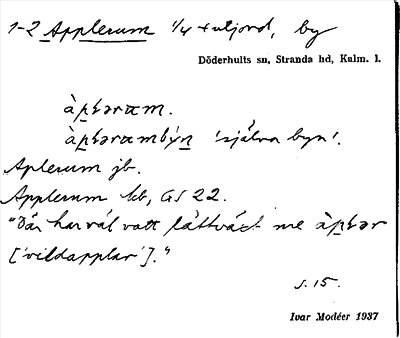 1-2 Applerum 1/4 + utjord, by
Döderhults sn, Stranda hd, Kalm. l.
àpɫəram.
àpɫərambýn 'själva byn'.
Aplerum jb.
Applerum kb, GS 22.
"Dǟr har väl vatt låttväxt me àpɫər
['vildapplar']."
s. 15.
Ivar Modéer 1937